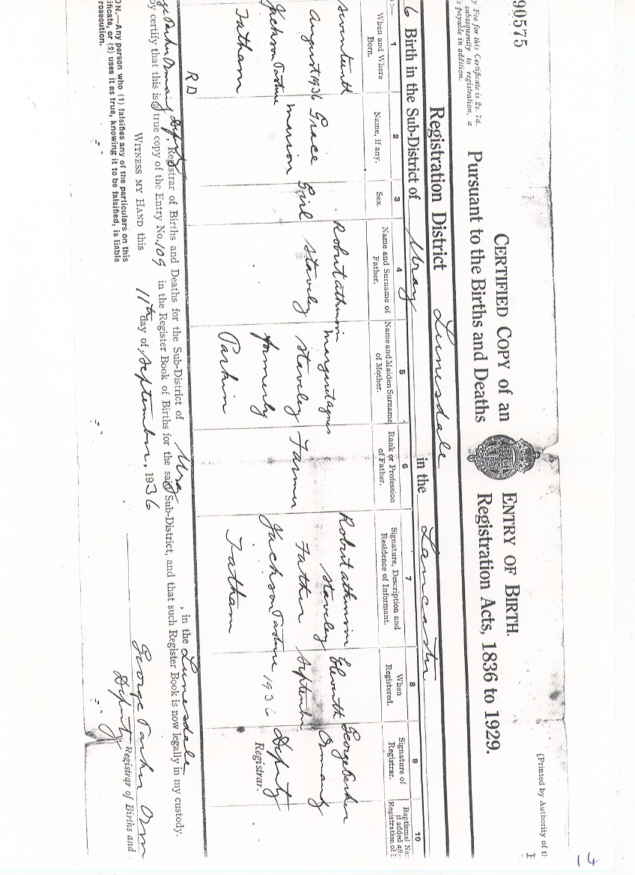 14
90575
[Printed by Authority of t
y Fee for this Certificate is 2s. 7d.
subsequently to registration, a
s payable in addition.
CERTIFIED COPY of an ENTRY OF BIRTH.
Pursuant to the Births and Deaths Registration Acts, 1836 to 1929.
Registration District Lunesdale
6 Birth in the Sub-District of Wray in the Lancaster
1 2 3 4 5 6 7 8 9 10
When and Where Born.
Name, if any.
Sex.
Name and Surname of Father.
Name and Maiden Surname of Mother.
Rank or Profession of Father.
Signature, Description and Residence of Informant.
When Registered.
Signature of Registrar.
Baptismal Na
if added aft
Registration of
Seventeenth
August 1936
Jackson Pasture
Tatham
R D
Grace
Marion
Girl
Robert Atkinson
Staveley
Margaret Agnes
Staveley
formerly
Parkin
Farmer
Robert Atkinson
Staveley
Father
Jackson Pasture
Tatham
Eleventh
September
1936
George Parker
Ormandy
Deputy
Registrar.
Registrar of Births and Deaths for the Sub-District of Wray, in the Lunesdale
by certify that this is a true copy of the Entry No. 109 in the Register Book of Births for the said Sub-District, and that such Register Book is now legally in my custody.
WITNESS MY HAND this 11th day of September, 1936
George Parker Orm
Deputy Registrar of Births and
ON.—Any person who (1) falsifies any of the particulars on this
ificate, or (2) uses it as true, knowing it to be falsified, is liable
rosecution.